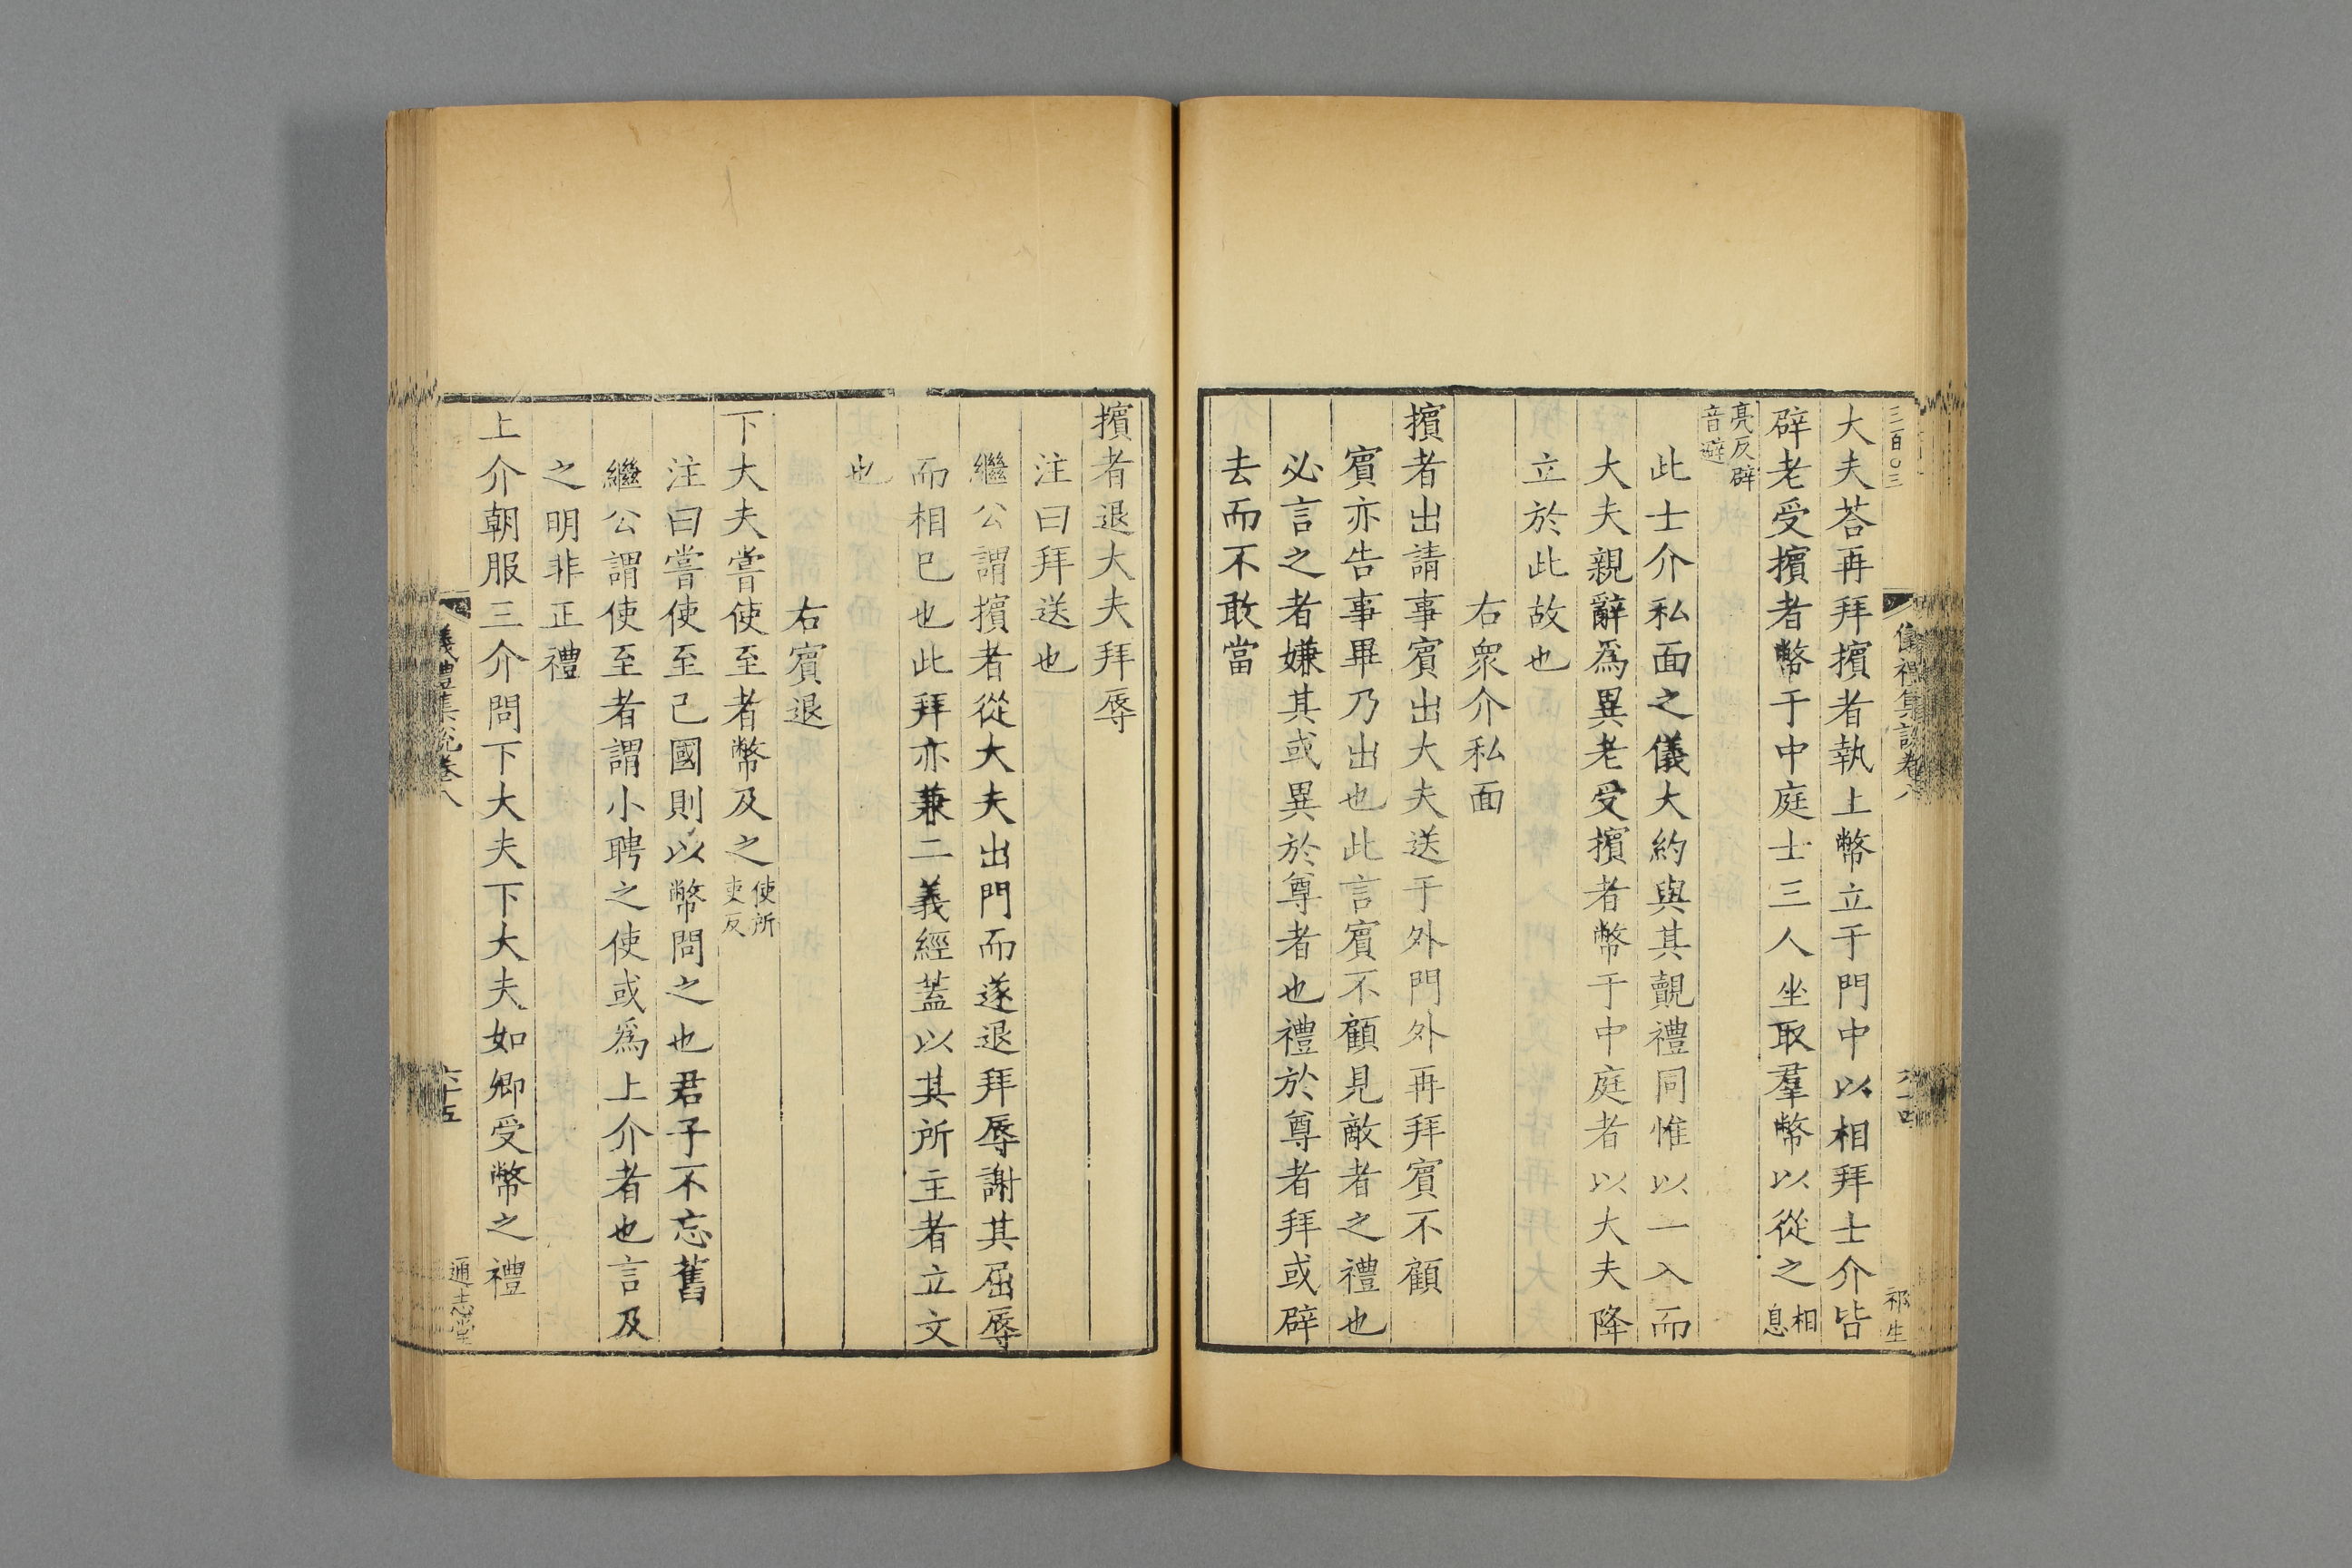 三百〇三
儀禮集說卷八
六十四
祁生
大夫荅再拜擯者執上幣立于門中以相拜士介皆
辟老受擯者幣于中庭士三人坐取羣幣以從之相息
亮反辟音避
此士介私面之儀大約與其覿禮同惟以一入而
大夫親辭爲異老受擯者幣于中庭者以大夫降
立於此故也
右衆介私面
擯者出請事賓出大夫送于外門外再拜賓不顧
賓亦告事畢乃出也此言賓不顧見敵者之禮也
必言之者嫌其或異於尊者也禮於尊者拜或辟
去而不敢當
擯者退大夫拜辱
注曰拜送也
繼公謂擯者從大夫出門而遂退拜辱謝其屈辱
而相已也此拜亦兼二義經蓋以其所主者立文
也
右賓退
下大夫嘗使至者幣及之使所吏反
注曰嘗使至己國則以幣問之也君子不忘舊
繼公謂使至者謂小聘之使或爲上介者也言及
之明非正禮
上介朝服三介問下大夫下大夫如卿受幣之禮
儀禮集說卷八
六十五
通志堂